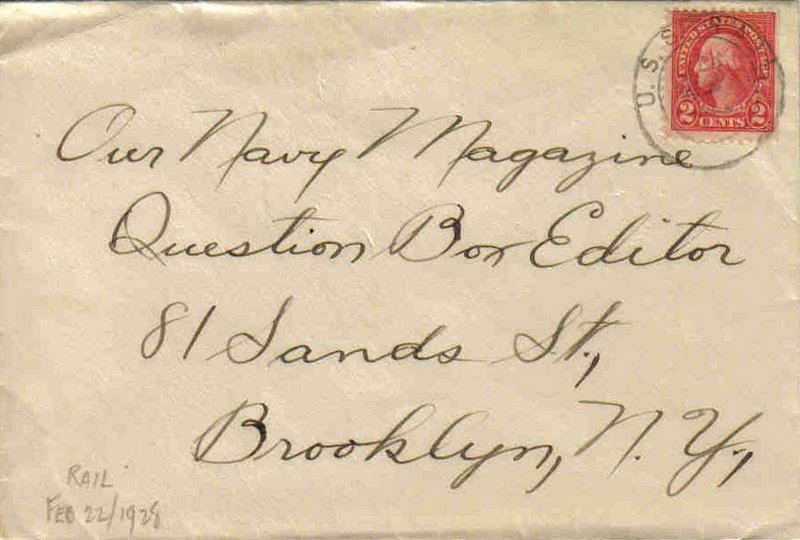 U. S. S.
UNITED STATES POSTAGE
2 CENTS 2
Our Navy Magazine
Question Box Editor
81 Sands St.,
Brooklyn, N. Y.,
RAIL
FEB 22/1928